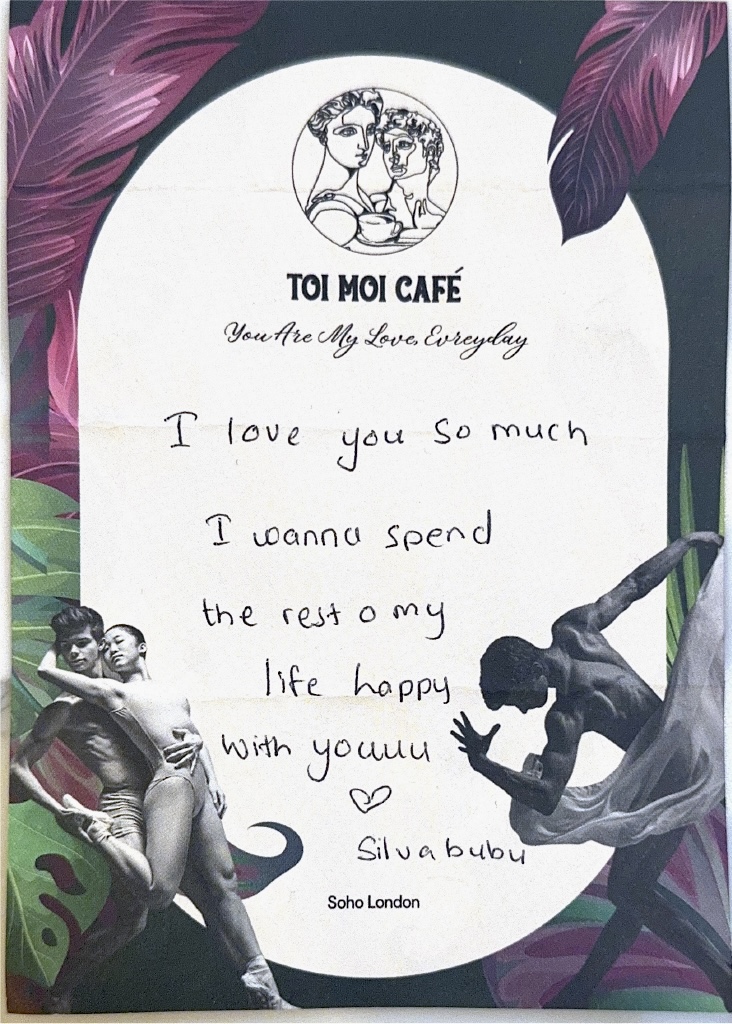 TOI MOI CAFÉ
You Are My Love, Evreyday
I love you so much
I wanna spend
the rest o my
life happy
with youuuu
Silvabubu
Soho London